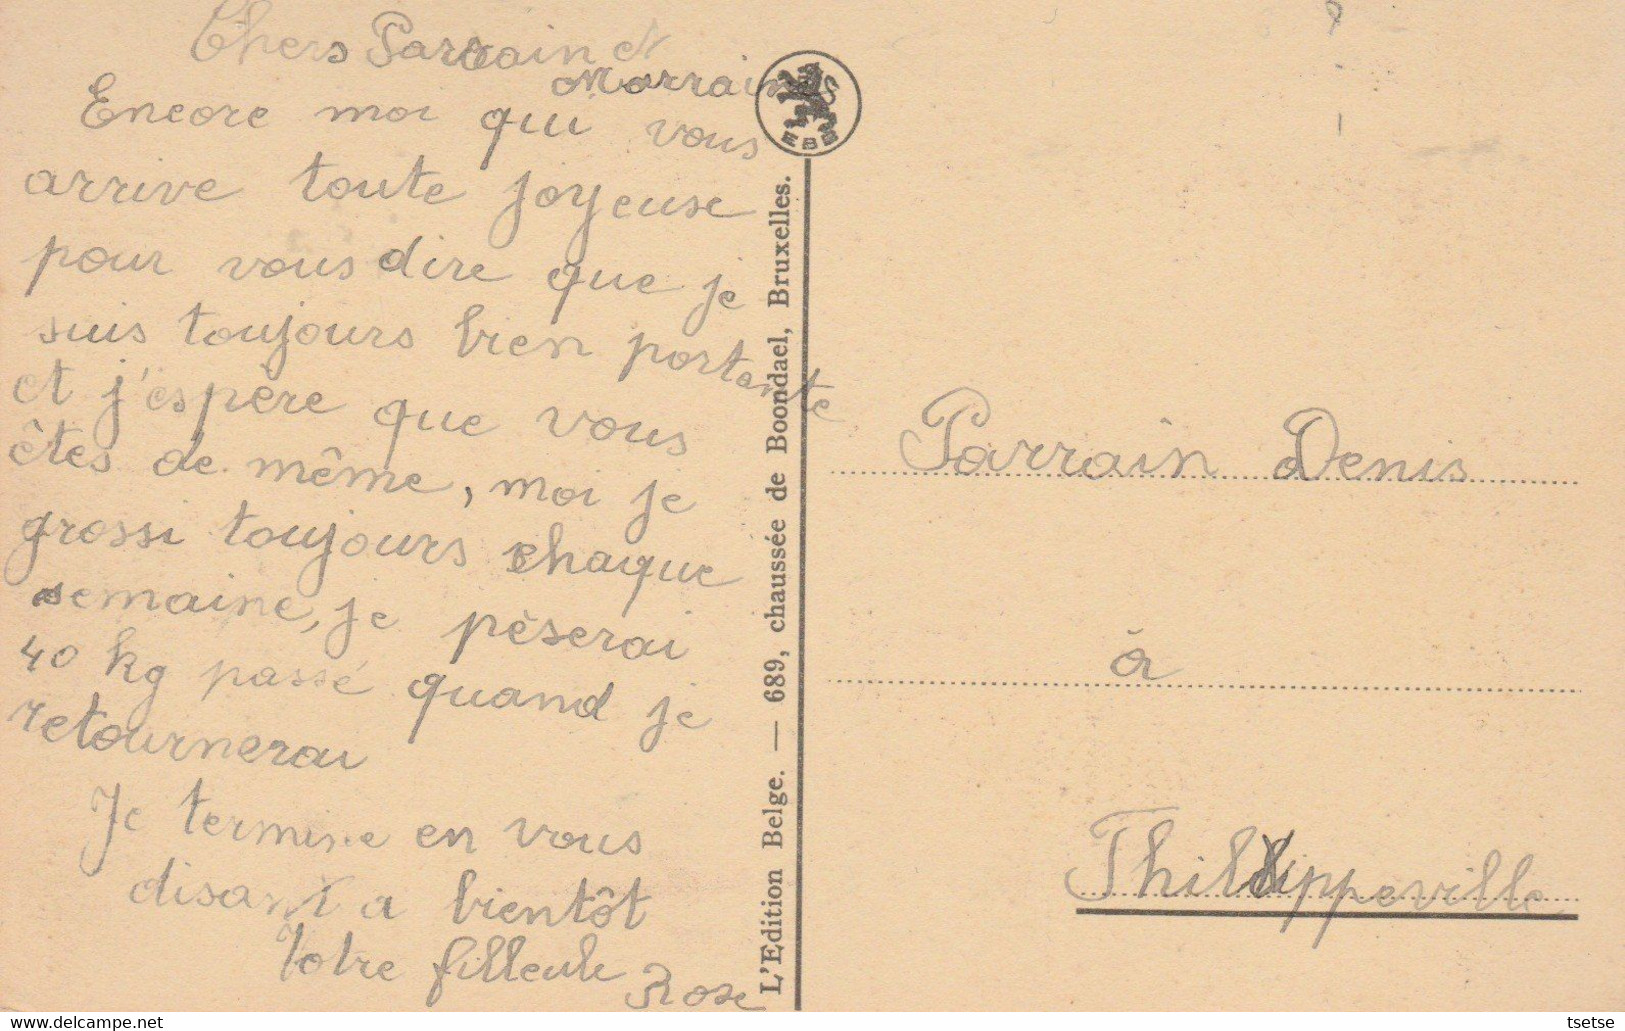 Chers Parrain et
Marraine
Encore moi qui vous
arrive toute joyeuse
pour vous dire que je
suis toujours bien portante
et j'espère que vous
êtes de même, moi je
grossi toujours chaque
semaine, je pèserai
40 kg passé quand je
retournerai
Je termine en vous
disant a bientôt
Votre filleule
Rose
EBB
L'Edition Belge. — 689, chaussée de Boondael, Bruxelles.
Parrain Denis
à
Philippeville
tsetse
https://www.delcampe.net